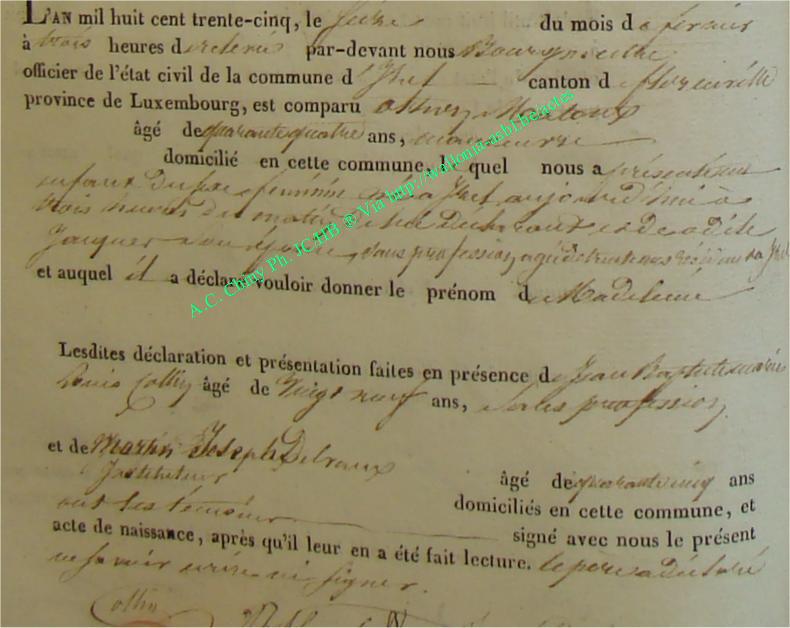 L'AN mil huit cent trente-cinq, le seize du mois de février
à trois heures de relevée par-devant nous Bourgmestre
officier de l'état civil de la commune d'Izel canton de Florenville
province de Luxembourg, est comparu
âgé de quarante quatre ans, manoeuvre
domicilié en cette commune, le quel nous a présenté un
enfant du sexe féminin né à Izel aujourd'hui à
trois heures du matin de lui déclarant et de
Jacques son épouse, sans profession, agée de trente
et auquel il a déclaré vouloir donner le prénom de Madeleine
Lesdites déclaration et présentation faites en présence de Jean Baptiste
Louis Collin âgé de vingt neuf ans, sans profession,
et de Martin Joseph Delvaux
Instituteur âgé de quarante cinq ans
domiciliés en cette commune, et
ont les témoins signé avec nous le présent
acte de naissance, après qu'il leur en a été fait lecture. le père a déclaré
ne savoir écrire ni signer.
Collin
A.C. Chiny Ph. JC HB ® Via http://wallonia-asbl.be/actes